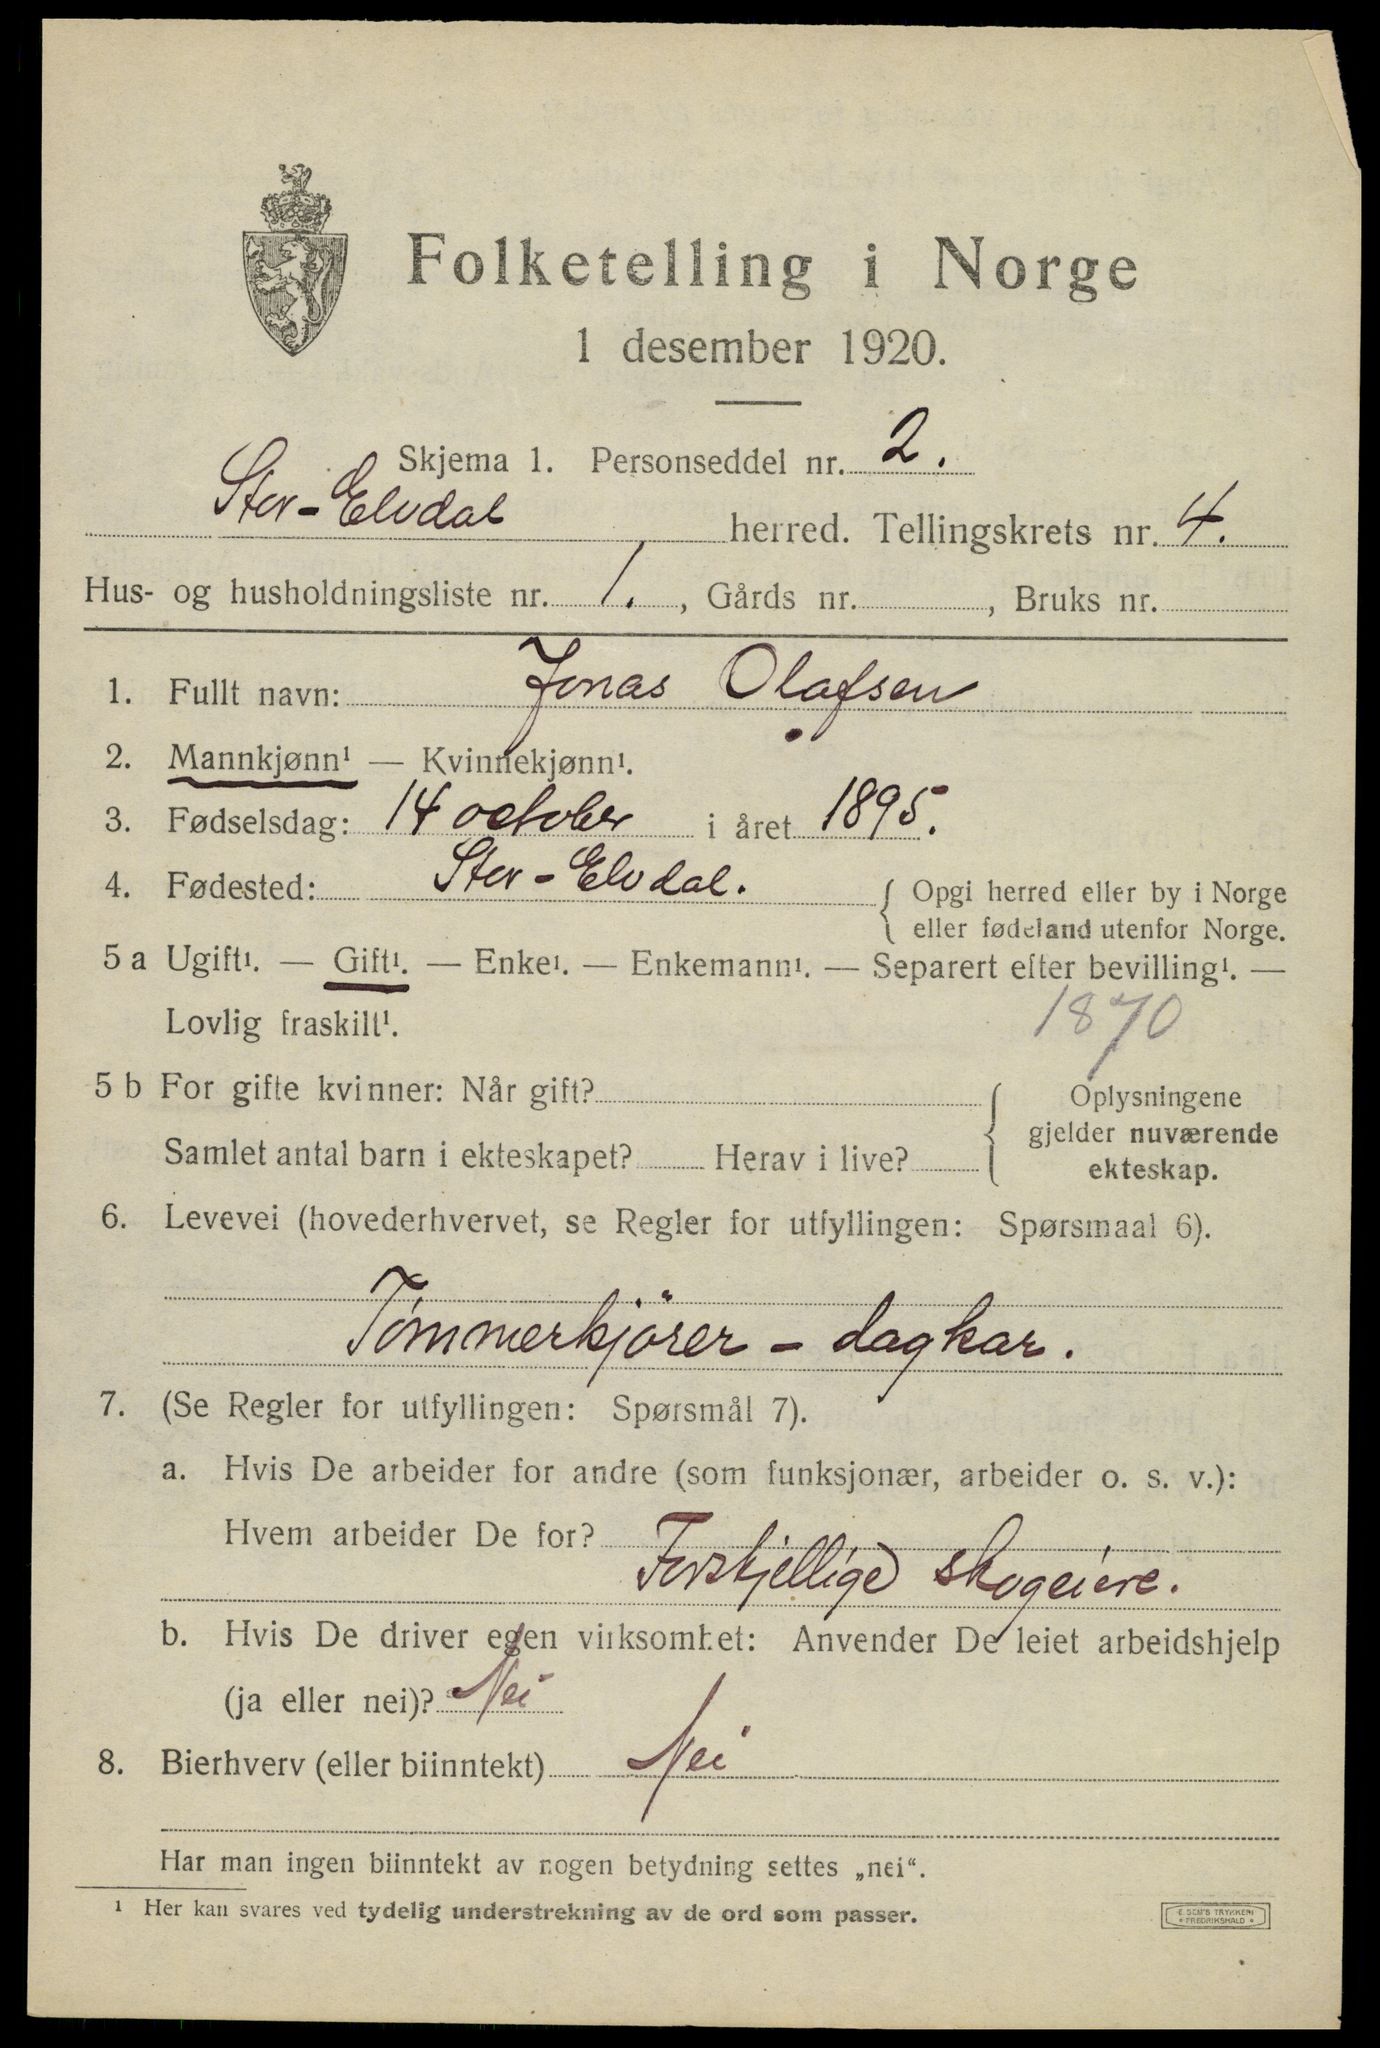 Folketelling i Norge
1 desember 1920.
Skjema 1. Personseddel nr. 2.
Stor-Elvdal herred. Tellingskrets nr. 4.
Hus- og husholdningsliste nr. 1., Gårds nr. , Bruks nr.
1. Fullt navn: Jonas Olafsen
2. Mannkjønn¹ — Kvinnekjønn¹.
3. Fødselsdag: 14 october i året 1895.
4. Fødested: Stor-Elvdal. { Opgi herred eller by i Norge
eller fødeland utenfor Norge.
5 a Ugift¹. — Gift¹. — Enke¹. — Enkemann¹. — Separert efter bevilling¹. —
Lovlig fraskilt¹. 1870
5 b For gifte kvinner: Når gift? { Oplysningene
gjelder nuværende
Samlet antal barn i ekteskapet? Herav i live? ekteskap.
6. Levevei (hovederhvervet, se Regler for utfyllingen: Spørsmaal 6).
Tömmerkjörer - dagkar.
7. (Se Regler for utfyllingen: Spørsmål 7).
a. Hvis De arbeider for andre (som funksjonær, arbeider o. s. v.):
Hvem arbeider De for?
Forskjellige skogeiere.
b. Hvis De driver egen virksomhet: Anvender De leiet arbeidshjelp
(ja eller nei)? Nei
8. Bierhverv (eller biinntekt) Nei
Har man ingen biinntekt av nogen betydning settes „nei“.
¹ Her kan svares ved tydelig understrekning av de ord som passer.
E. SEM'S TRYKKERI
FREDRIKSHALD